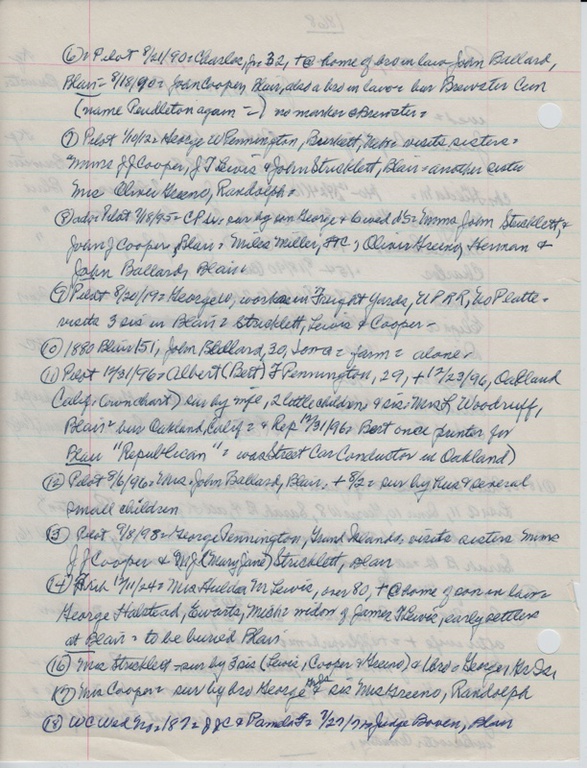 1968
(6) Pilot 8/21/90 = Charles, Jr. 32, + @ home of bro in law John Ballard,
Blair = 8/18/90 = John Cooper, Blair, also a bro in law = bur Brewster Cem
(name Pendleton again =) no marker @ Brewster =
(7) Pilot George W Pennington, Burkett, Nebr visits sisters =
"Mmes J J Cooper, J T Lewis & John Stricklett, Blair = another sister
Mrs Oliver Greeno, Randolph =
(8) Pilot 7/18/95 = C P sur by son George & 6 wed ds = Mmes John Stricklett, &
John J Cooper, Blair = Miles Miller, Oliver Greeno, Herman &
John Ballard, Blair.
(9) Pilot 8/20/19 = George W, works in Freight Yards, U P R R, No Platte =
visits 3 sis in Blair = Stricklett, Lewis & Cooper =
(10) 1880 Blair 151, John Ballard, 30, Iowa = farm = alone =
(11) Pilot 12/31/96 = Albert (Bert) F Pennington, 29, + 12/23/96, Oakland
Calif = (own chart) sur by wife, 2 little children & sis Mrs L Woodruff,
Blair = bur Oakland, Calif = & Rep 12/31/96 = Bert once printer for
Blair "Republican" = was Street Car Conductor in Oakland)
(12) Pilot 8/6/96 = Mrs. John Ballard, Blair, + 8/2 = sur by hus & several
small children
(13) Pilot 9/8/98 = George Pennington, Grand Island, visits sisters Mmes
J J Cooper & M J (Mary Jane) Stricklett, Blair
(14) 12/11/24 = Mrs Hulda M Lewis, over 80, + @ home of son in law =
George Halstead, Ewarts, Mich = widow of James T Lewis, early settlers
at Blair = to be buried Blair
(16) Mrs Stricklett = sur by 3 sis (Lewis, Cooper & Greeno) & 1 bro = George, Gr Isl
(17) Mrs Cooper = sur by bro George Gr Isl & sis Mrs Greeno, Randolph
(18) W C Wed No = 187 = J J C & Pamela F = Judge Bowen, Blair